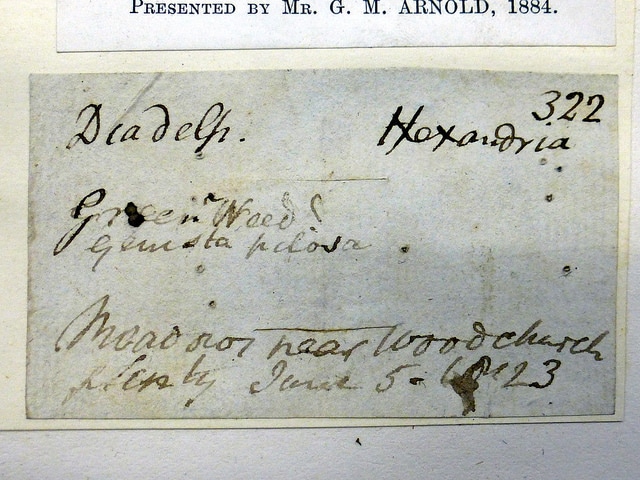 PRESENTED BY MR. G. M. ARNOLD, 1884.
322
Diadelp. Hexandria
Green Weed
Genista pilosa
Meadows near Woodchurch
plenty June 5. 1823